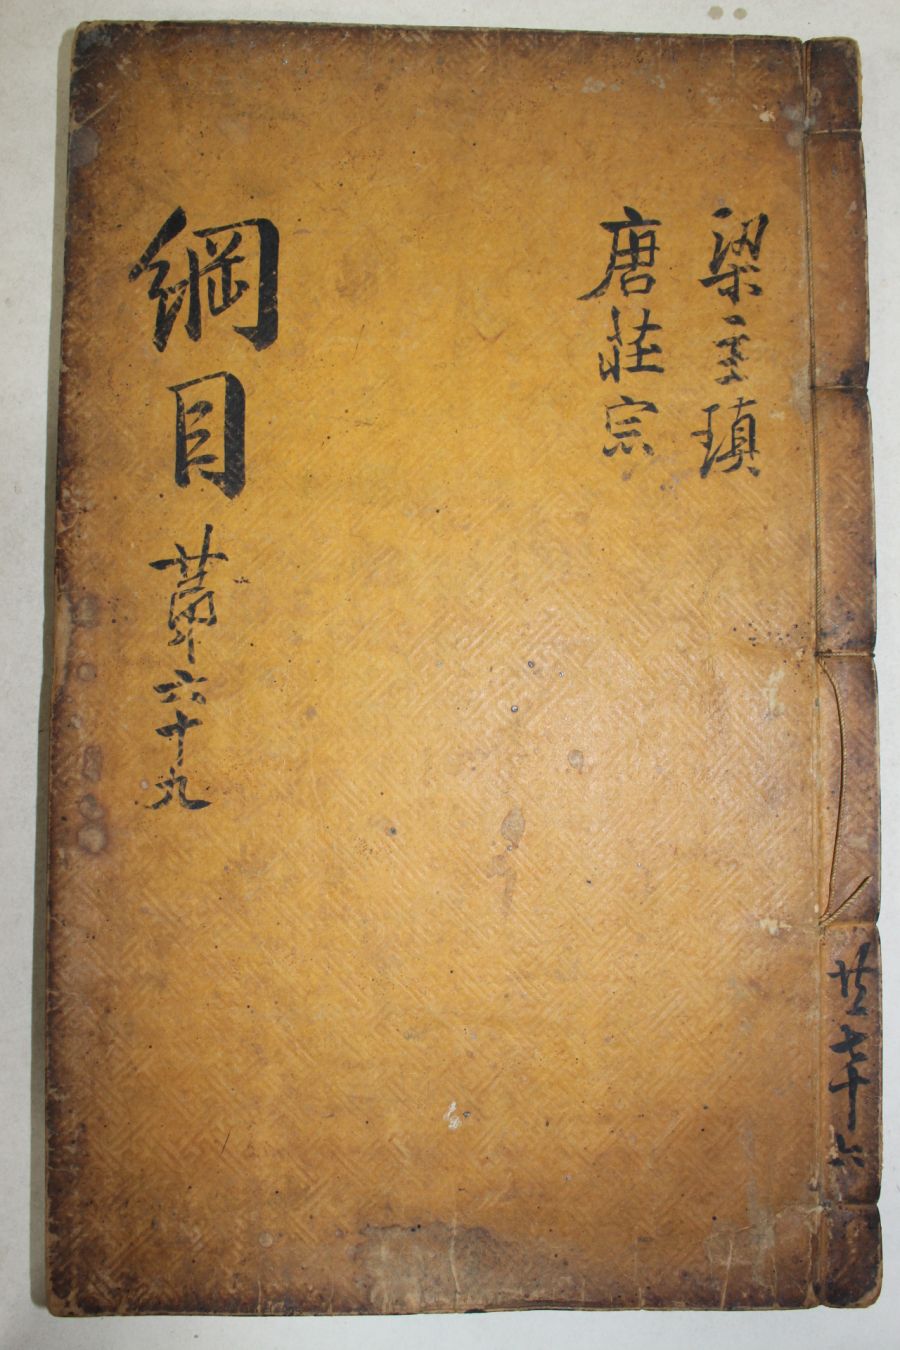 梁主瑱
唐莊宗
綱目 苐六十九
共七十六